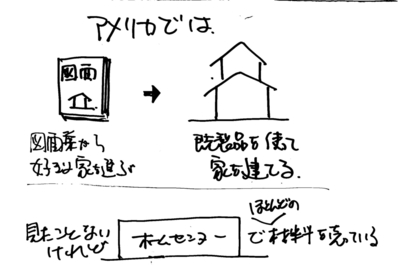 アメリカでは
図面
図面集から
好きな家を選ぶ
既製品を使って
家を建てる.
見たことない
けれど
ホームセンター
ほとんどの
で材料を売っている